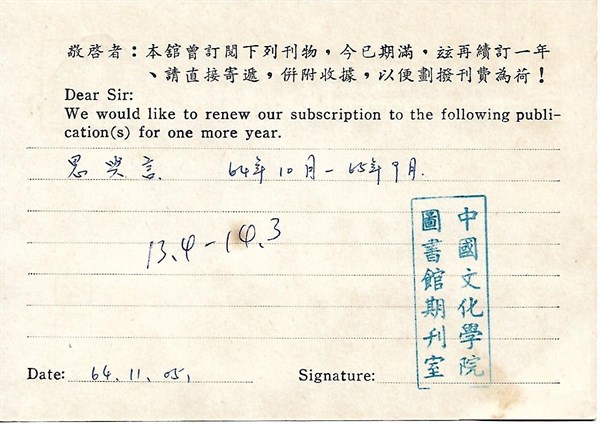 敬啓者：本舘曾訂閱下列刊物，今已期滿，玆再續訂一年
、請直接寄遞，併附收據，以便劃撥刊費為荷！
Dear Sir:
We would like to renew our subscription to the following publi-
cation(s) for one more year.
思與言 64年10月－65年9月.
13.4－14.3
中國文化學院
圖書館期刊室
Date: 64.11.05.
Signature: